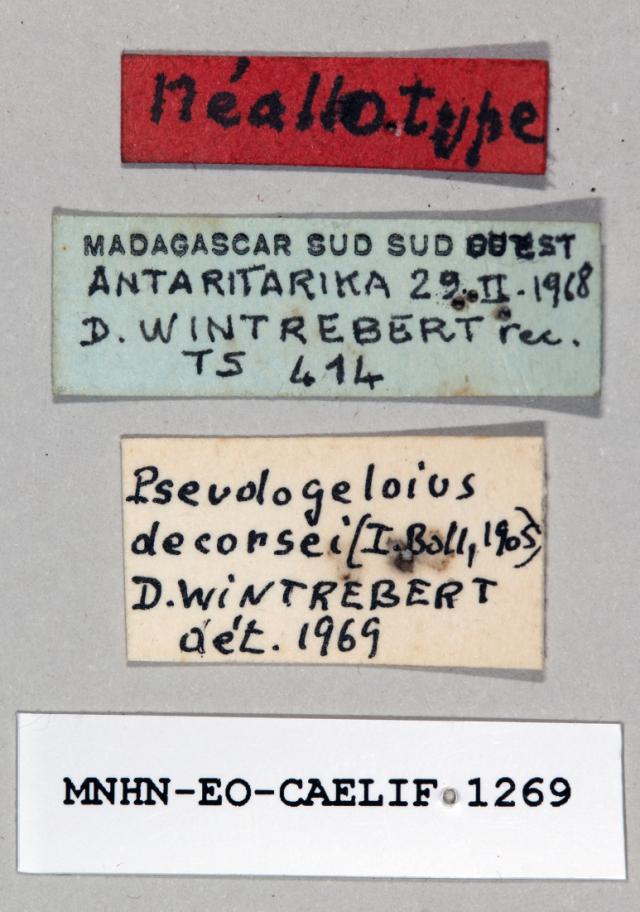 Néallotype
MADAGASCAR SUD SUD OUEST
ANTARITARIKA 29.II.1968
D. WINTREBERT rec.
TS 414
Pseudogeloius
decorsei (I. Boll, 1905)
D. WINTREBERT
dét. 1969
MNHN-EO-CAELIF 1269